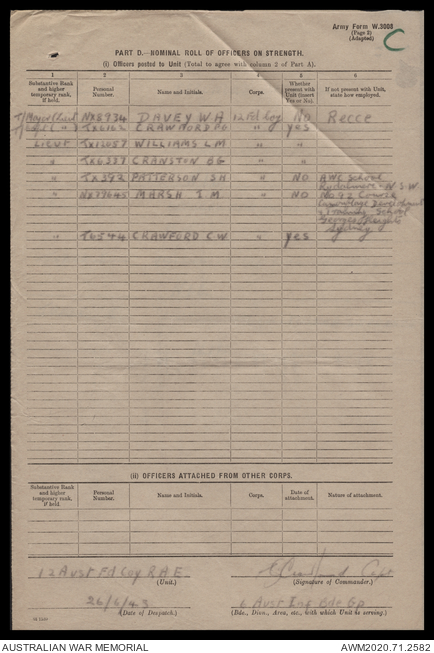 Army Form W.3008
(Page 2)
(Adapted)
C
PART D.—NOMINAL ROLL OF OFFICERS ON STRENGTH.
(i) Officers posted to Unit (Total to agree with column 2 of Part A).
1 2 3 4 5 6
Substantive Rank and higher temporary rank, if held. Personal Number. Name and Initials. Corps. Whether present with Unit (insert Yes or No). If not present with Unit, state how employed.
NX8934 DAVEY W A 12 Fd Coy NO Recce
TX6162 CRAWFORD " yes
LIEUT TX12057 WILLIAMS L M " "
" TX6337 CRANSTON B G " "
" TX392 PATTERSON S H " NO AWC School
N.S.W
" NX79645 MARSH I M " NO No 92
Camouflage Development
& Training School
Georges Heights
Sydney
" T6544 CRAWFORD C W " yes
(ii) OFFICERS ATTACHED FROM OTHER CORPS.
Substantive Rank and higher temporary rank, if held. Personal Number. Name and Initials. Corps. Date of attachment. Nature of attachment.
12 Aust Fd Coy RAE
(Unit.)
Capt
(Signature of Commander.)
26/6/43
(Date of Despatch.)
6 Aust Inf Bde Gp
(Bde., Divn., Area, etc., with which Unit is serving.)
AUSTRALIAN WAR MEMORIAL
AWM2020.71.2582